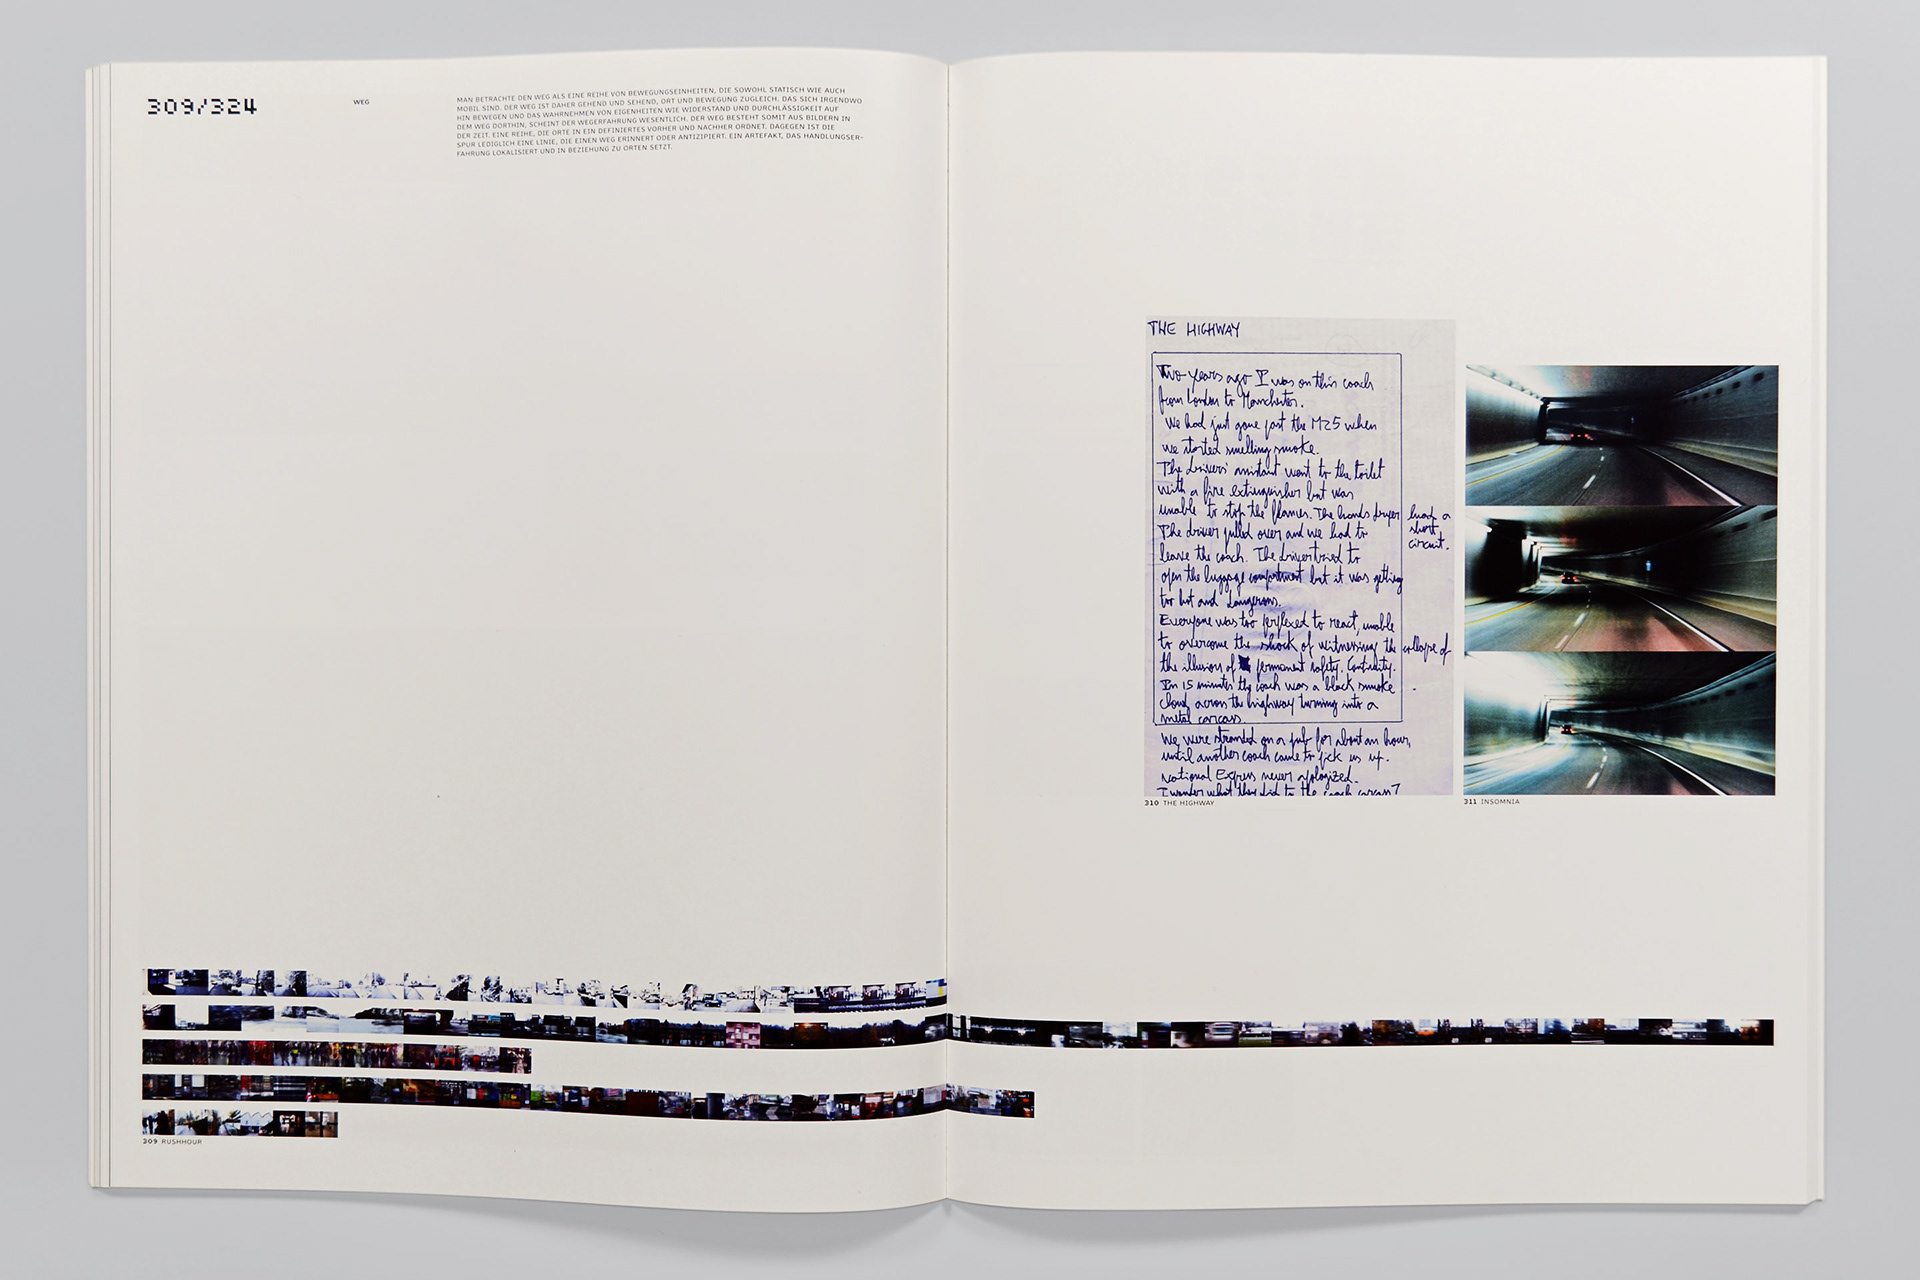 309/324
WEG
MAN BETRACHTE DEN WEG ALS EINE REIHE VON BEWEGUNGSEINHEITEN, DIE SOWOHL STATISCH WIE AUCH
MOBIL SIND. DER WEG IST DAHER GEHEND UND SEHEND, ORT UND BEWEGUNG ZUGLEICH. DAS SICH IRGENDWO
HIN BEWEGEN UND DAS WAHRNEHMEN VON EIGENHEITEN WIE WIDERSTAND UND DURCHLÄSSIGKEIT AUF
DEM WEG DORTHIN, SCHEINT DER WEGERFAHRUNG WESENTLICH. DER WEG BESTEHT SOMIT AUS BILDERN IN
DER ZEIT. EINE REIHE, DIE ORTE IN EIN DEFINIERTES VORHER UND NACHHER ORDNET. DAGEGEN IST DIE
SPUR LEDIGLICH EINE LINIE, DIE EINEN WEG ERINNERT ODER ANTIZIPIERT. EIN ARTEFAKT, DAS HANDLUNGSER-
FAHRUNG LOKALISIERT UND IN BEZIEHUNG ZU ORTEN SETZT.
309 RUSHHOUR
THE HIGHWAY
Two years ago I was on this coach
from London to Manchester.
We had just gone past the M25 when
we started smelling smoke.
The drivers' assistant went to the toilet
with a fire extinguisher but was
unable to stop the flames. The hands dryer had a
short
circuit.
The driver pulled over and we had to
leave the coach. The driver tried to
open the luggage compartment but it was getting
too hot and dangerous.
Everyone was too perplexed to react, unable
to overcome the shock of witnessing the collapse of
the illusion of permanent safety. Continuity.
In 15 minutes the coach was a black smoke
cloud across the highway turning into a
metal carcass.
We were stranded on a pub for about an hour,
until another coach came to pick us up.
National Express never apologized.
I wonder what they did to the coach carcass?
310 THE HIGHWAY
311 INSOMNIA